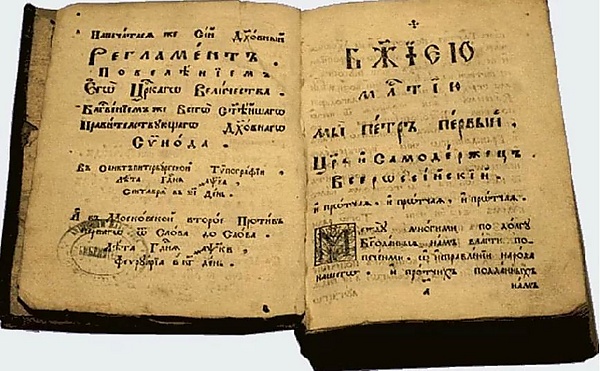 Напечатася же Сїй Дх҃о́вный
Регла́ментъ.
Повелѣ́нїемъ
Егѡ̀ Цр҃скагѡ Вели́чества.
Правителствующагѡ Дх҃о́внагѡ
Сѷно́да.
Въ Санктъпитербургской Тѷпографїи
лѣта Гдня
Сентаврїа въ день.
А въ Московской второе Проти́въ
пе́рвагѡ ѿ Сло́ва до Сло́ва.
Лѣта Гдня
Февруарїа в день.
Бж҃їєю
мл҃тїю
мы̀ пе́тръ пе́рвый.
Цр҃ь и҆ Самоде́ржецъ
Всеросcї́йскїй.
и҆ про́тчаѧ, и҆ про́тчаѧ, и҆ про́тчаѧ.
Между̀ мно́гими, по до́лгу
Бг҃ода́нныѧ на́мъ вла́сти по
пече́ньми, ѡ҆ и҆справле́нїи наро́да
на́шегѡ, и҆ про́тчихъ по́дданныхъ
а҃ на́мъ